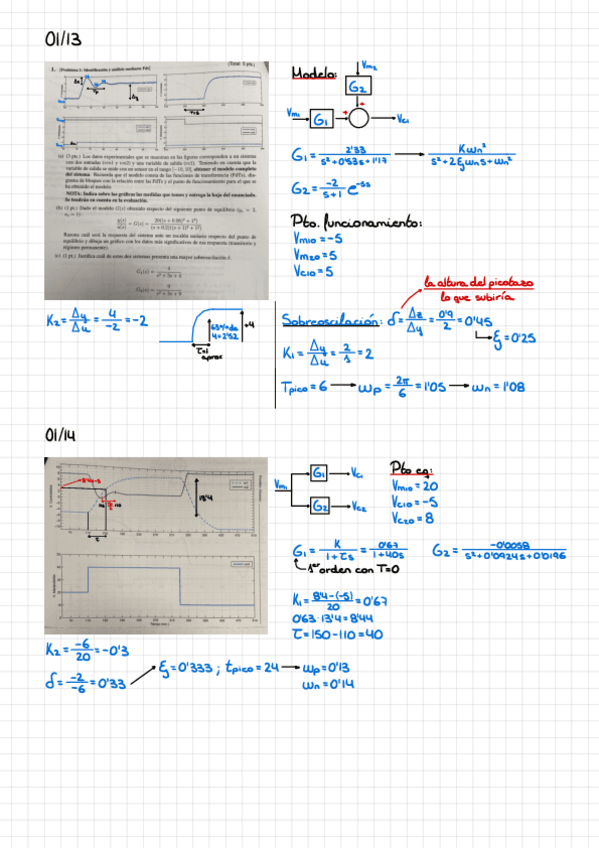 01/13
1. [Problema 1: Identificación y análisis sistemas Fdt]
(Total: 5 pts.)
(a) (3 pts.) Los datos experimentales que se muestran en las figuras corresponden a un sistema
con dos entradas (vm1 y vm2) y una variable de salida (vc1). Teniendo en cuenta que la
variable de salida se mide con un sensor en el rango [−10, 10], obtener el modelo completo
del sistema. Recuerda que el modelo consta de las funciones de transferencia (FdTs), dia-
grama de bloques con la relación entre las FdTs y el punto de funcionamiento para el que se
ha obtenido el modelo.
NOTA: Indica sobre las gráficas las medidas que tomes y entrega la hoja del enunciado.
Se tendrán en cuenta en la evaluación.
Razona cuál será la respuesta del sistema ante un escalón unitario respecto del punto de
equilibrio y dibuja un gráfico con los datos más significativos de esa respuesta (transitorio y
régimen permanente).
(c) (1 pto.) Justifica cuál de estos dos sistemas presenta una mayor sobreoscilación δ.
Modelo:
Vm2
G2
Vm1
G1
Vc1
G1 = 2'33 / s²+0'53s+1'17 → Kωn² / s²+2ξωns+ωn²
G2 = -2 / s+1 e^-5s
Pto. funcionamiento:
Vm10 = -5
Vm20 = 5
Vc10 = 5
K2 = Δy/Δu = 4/-2 = -2
63% de
4=2'52
+4
τ=1
aprox
la altura del picotazo
lo que subiría
Sobreoscilación: δ = Δz/Δy = 0'9/2 = 0'45
ξ = 0'25
K1 = Δy/Δu = 2/1 = 2
Tpico = 6 → ωp = 2π/6 = 1'05 → ωn = 1'08
01/14
13'4
τ
Vm1
G1
Vc1
G2
Vc2
Pto eq:
Vm10 = 20
Vc10 = -5
Vc20 = 8
G1 = K / 1+τs = 0'67 / 1+40s
G2 = -0'0058 / s²+0'0924s+0'0196
1er orden con T=0
K1 = 8'4-(-5) / 20 = 0'67
0'63·13'4 = 8'44
τ = 150-110 = 40
K2 = -6/20 = -0'3
δ = -2/-6 = 0'33 → ξ = 0'333 ; tpico = 24 → ωp = 0'13
ωn = 0'14